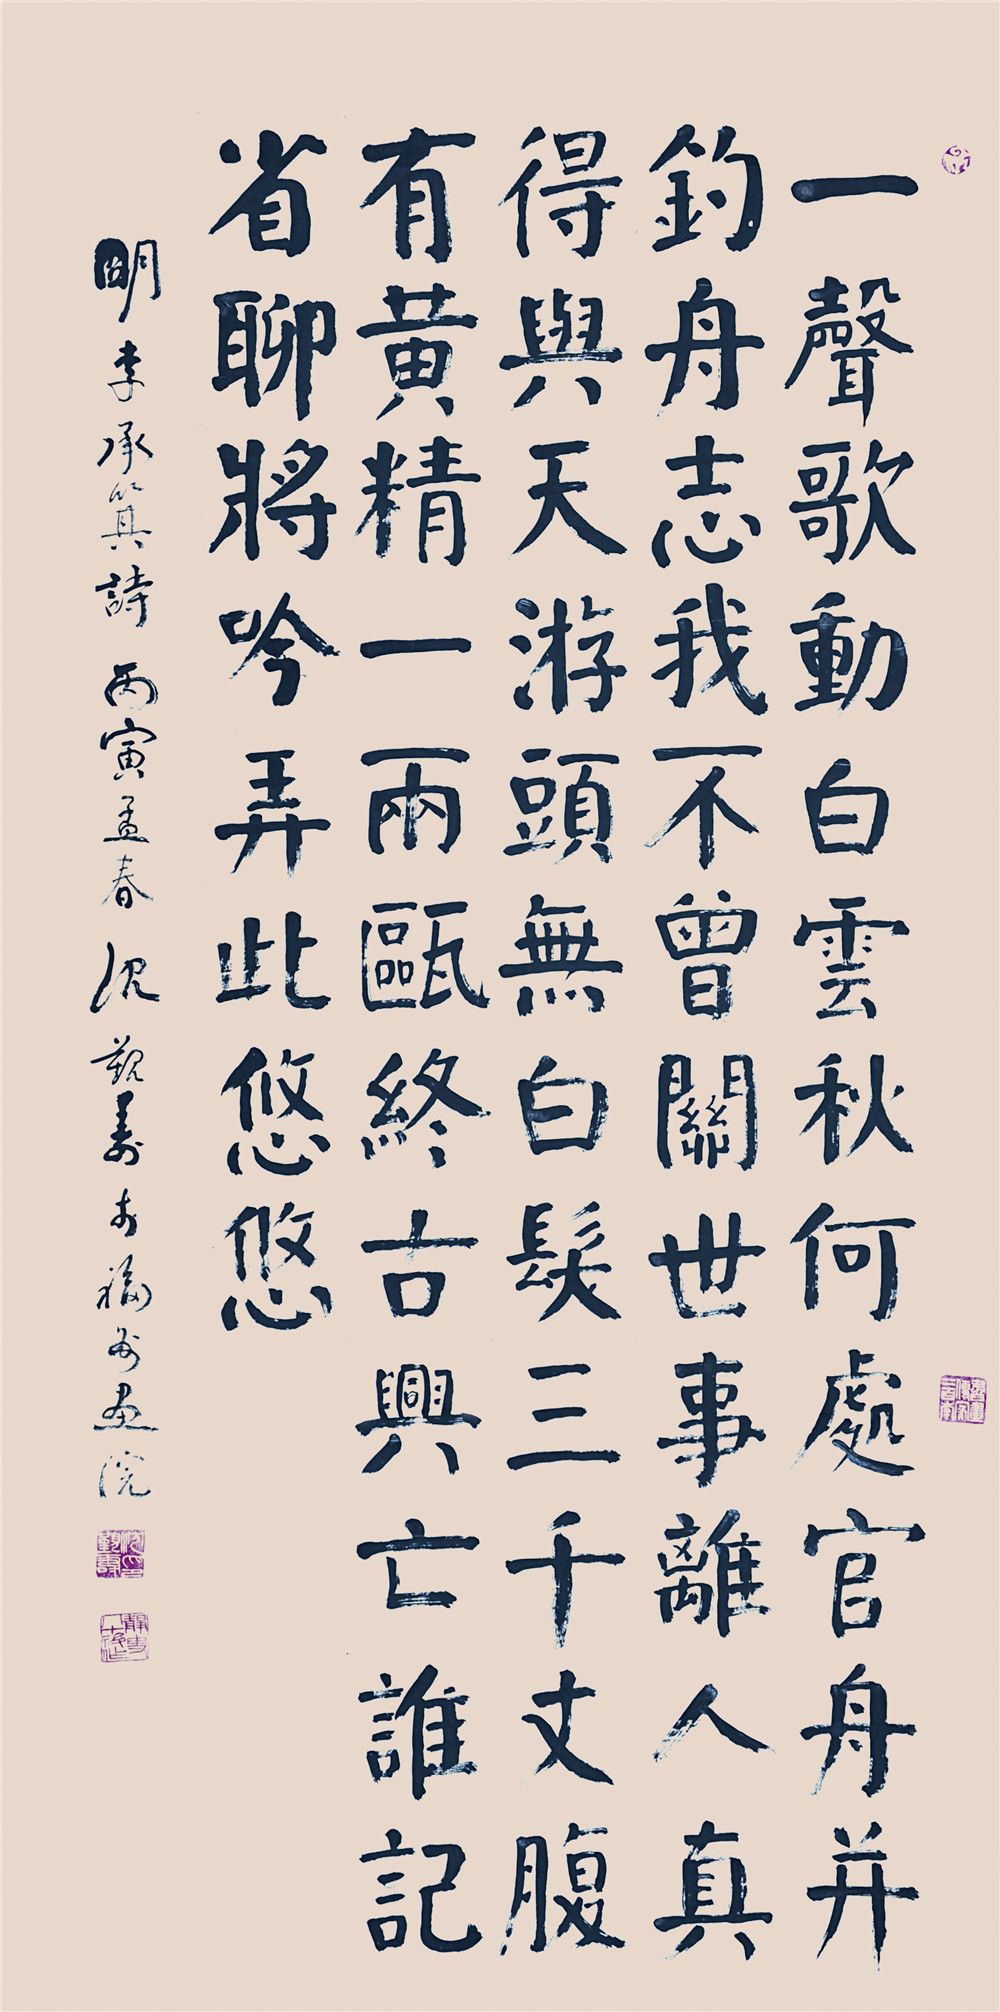 一聲歌動白雲秋何處官舟并
釣舟志我不曾關世事離人真
得與天游頭無白髮三千丈腹
有黄精一兩甌終古興亡誰記
省聊將吟弄此悠悠
明李承箕詩 丙寅孟春 沈觐壽书於福州画院